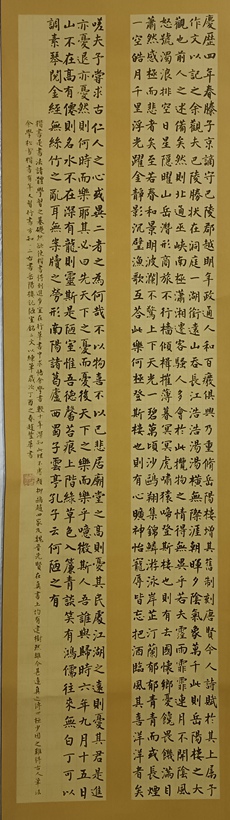 慶歷四年春滕子京謫守巴陵郡越明年政通人和百廢俱興乃重修岳陽樓增其舊制刻唐賢今人詩賦於其上屬予
作文以記之余觀夫巴陵勝狀在洞庭一湖銜遠山吞長江浩浩湯湯橫無際涯朝暉夕陰氣象萬千此則岳陽樓之大
觀也前人之述備矣然則北通巫峽南極瀟湘遷客騷人多會於此攬物之情得無異乎若夫霪雨霏霏連月不開陰風
怒號濁浪排空日星隱曜山岳潛形商旅不行檣傾楫摧薄暮冥冥虎嘯猿啼登斯樓也則有去國懷鄉憂讒畏譏滿目
蕭然感極而悲者矣至若春和景明波瀾不驚上下天光一碧萬頃沙鷗翔集錦鱗游泳岸芷汀蘭郁郁青青而或長煙
一空皓月千里浮光躍金靜影沉璧漁歌互答此樂何極登斯樓也則有心曠神怡寵辱皆忘把酒臨風其喜洋洋者矣
嗟夫予嘗求古仁人之心或異二者之為何哉不以物喜不以己悲居廟堂之高則憂其民處江湖之遠則憂其君是進
亦憂退亦憂然則何時而樂耶其必曰先天下之憂而憂後天下之樂而樂乎噫微斯人吾誰與歸時六年九月十五日
山不在高有僊則名水不在深有龍則靈斯是陋室惟吾德馨苔痕上階綠草色入簾青談笑有鴻儒往來無白丁可以
調素琴閱金經無絲竹之亂耳無案牘之勞形南陽諸葛廬西蜀子雲亭孔子云何陋之有